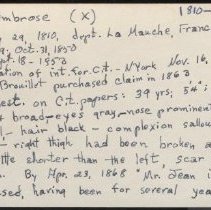 mbrose (X) 1810-
29, 1810, dept. La Manche, Franc
Oct. 31, 1850
pt. 18-1850
ation of int. for Cit. - N York Nov. 16,
Brouillet purchased claim in 1860
est. on Cit. papers: 39 yrs; 5'4";
broad - eyes gray - nose prominen
- hair black - complexion sallow
- right thigh had been broken a
ttle shorter than the left, scar
n. By Apr. 23, 1868 "Mr. Jean i
sed, having been for several yea